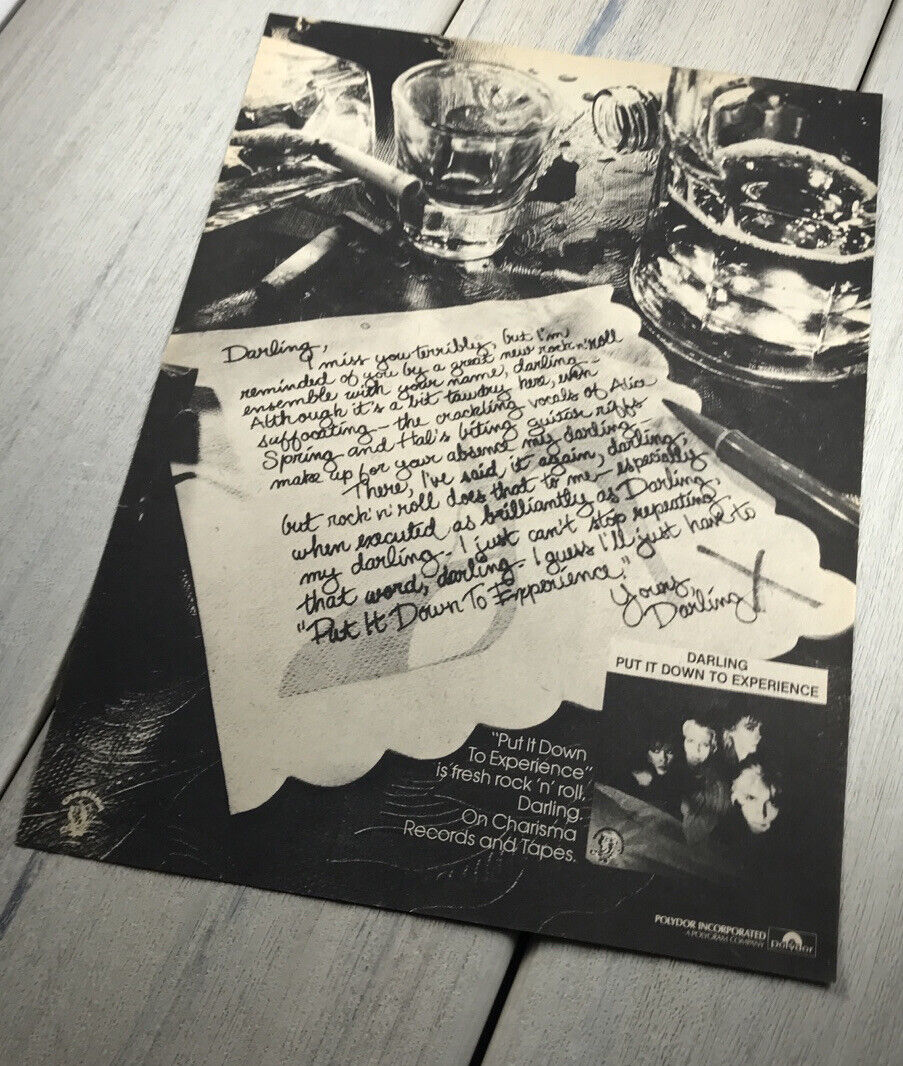 Darling,
I miss you terribly, but I'm
reminded of you by a great new rock'n'roll
ensemble with your name, darling -
Although it's a bit tawdry here, even
suffocating - the crackling vocals of Alice
Spring and Hal's biting guitar riffs
make up for your absence my darling.
There, I've said it again, darling,
but rock'n'roll does that to me - especially
when executed as brilliantly as Darling,
my darling. I just can't stop repeating
that word, darling - I guess I'll just have to
"Put It Down To Experience."
Yours,
Darling!
DARLING
PUT IT DOWN TO EXPERIENCE
"Put It Down
To Experience"
is fresh rock 'n' roll,
Darling.
On Charisma
Records and Tapes.
POLYDOR INCORPORATED
A POLYGRAM COMPANY
polydor